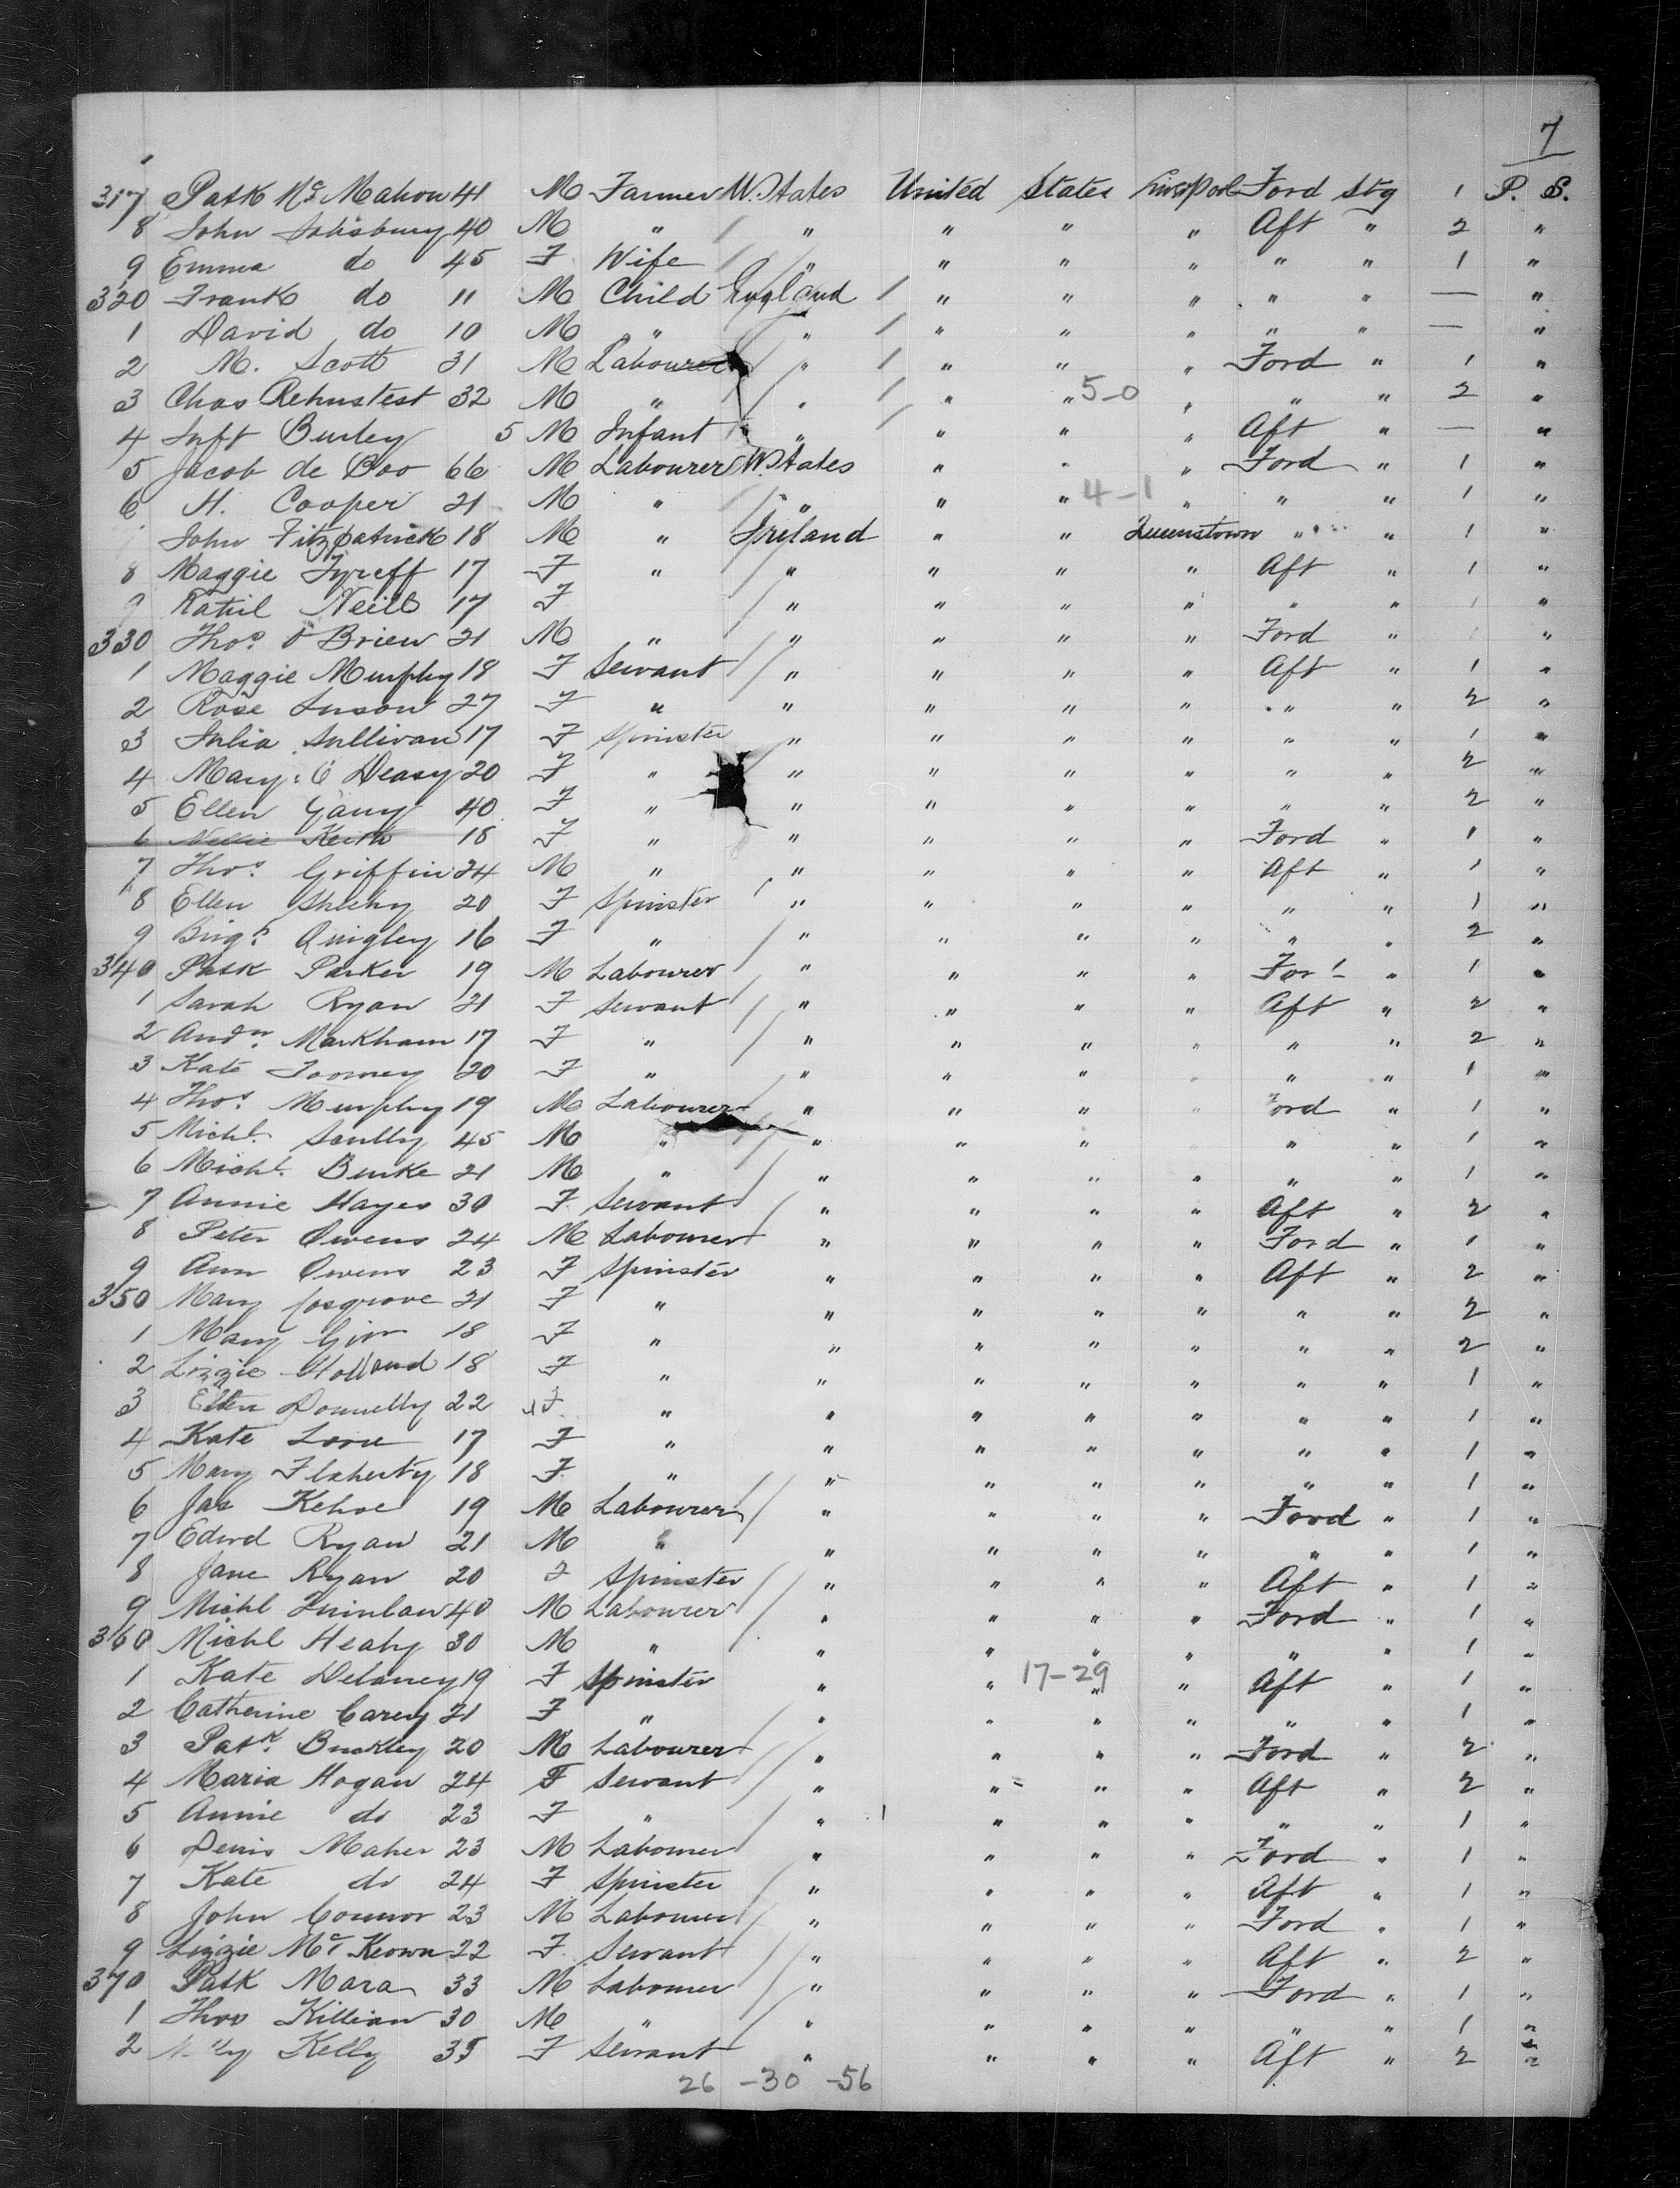 7
317 Patk Mc Mahon 41 M Farmer U. States United States Liverpool Ford Stg 1 P. S.
8 John Salisbury 40 M " " " " " Aft " 2 "
9 Emma do 45 F Wife " " " " " " 1 "
320 Frank do 11 M Child England " " " " " — "
1 David do 10 M " " " " " " " — "
2 M. Scott 31 M Labourer " " " " Ford " 1 "
3 Chas 32 M " " " " 5-0 " " " 2 "
4 Inft Burley 5 M Infant " " " " Aft " — "
5 Jacob de Boo 66 M Labourer U. States " " " Ford " 1 "
6 H. Cooper 21 M " " " " 4-1 " " " 1 "
John Fitzpatrick 18 M " Ireland " " Queenstown " " 1 "
8 Maggie 17 F " " " " " Aft " 1 "
9 Neill 17 F " " " " " " 1 "
330 Thos. O'Brien 21 M " " " " " Ford " "
1 Maggie Murphy 18 F Servant " " " " Aft " 1 "
2 Rose 27 F " " " " " " " 2 "
3 Julia Sullivan 17 F Spinster " " " " " " 1 "
4 Mary O'Deasy 20 F " " " " " " " 2 "
5 Ellen 40 F " " " " " " " 2 "
6 Nellie Keith 18 F " " " " " Ford " 1 "
7 Thos. Griffin 24 M " " " " " Aft " 1 "
8 Ellen Sheehy 20 F Spinster " " " " " " 1 "
9 Brigt. Quigley 16 F " " " " " " " 2 "
340 Patk Parker 19 M Labourer " " " " Ford " 1 "
1 Sarah Ryan 21 F Servant " " " " Aft " 2 "
2 Andw. Markham 17 F " " " " " " " 2 "
3 Kate Toomey 20 F " " " " " " 1 "
4 Thos. Murphy 19 M Labourer " " " " Ford " 1 "
5 Michl. Scully 45 M " " " " " " 1 "
6 Michl. Burke 21 M " " " " " " " 1 "
7 Annie Hayes 30 F Servant " " " " Aft " 2 "
8 Peter Owens 24 M Labourer " " " " Ford " 1 "
9 Ann Owens 23 F Spinster " " " " Aft " 2 "
350 Mary Cosgrove 21 F " " " " " " " 2 "
1 Mary 18 F " " " " " " " 2 "
2 Lizzie Holland 18 F " " " " " " " 1 "
3 Ellen Donnelly 22 F " " " " " " " 1 "
4 Kate 17 F " " " " " " " 1 "
5 Mary Flaherty 18 F " " " " " " " 1 "
6 Jas Kehoe 19 M Labourer " " " " Ford " 1 "
7 Edwd Ryan 21 M " " " " " " " 1 "
8 Jane Ryan 20 F Spinster " " " " Aft " 1 "
9 Michl Quinlan 40 M Labourer " " " " Ford " 1 "
360 Michl Heahy 30 M " " " " " " " 1 "
1 Kate Delaney 19 F Spinster " " 17-29 " " Aft " 1 "
2 Catherine Carey 21 F " " " " " " " 1 "
3 Patk. Buckley 20 M Labourer " " " " Ford " 2 "
4 Maria Hogan 24 F Servant " " " " Aft " 2 "
5 Annie do 23 F " " " " " " 1 "
6 Denis Maher 23 M Labourer " " " " Ford " 1 "
7 Kate do 24 F Spinster " " " " Aft " 1 "
8 John Connor 23 M Labourer " " " " Ford " 1 "
9 Lizzie McKeown 22 F Servant " " " " Aft " 2 "
370 Patk Mara 33 M Labourer " " " " Ford " 1 "
1 Thos Killian 30 M " " " " " " " 1 "
2 Kelly 35 F Servant " " " " Aft " 2 "
26 - 30 - 56